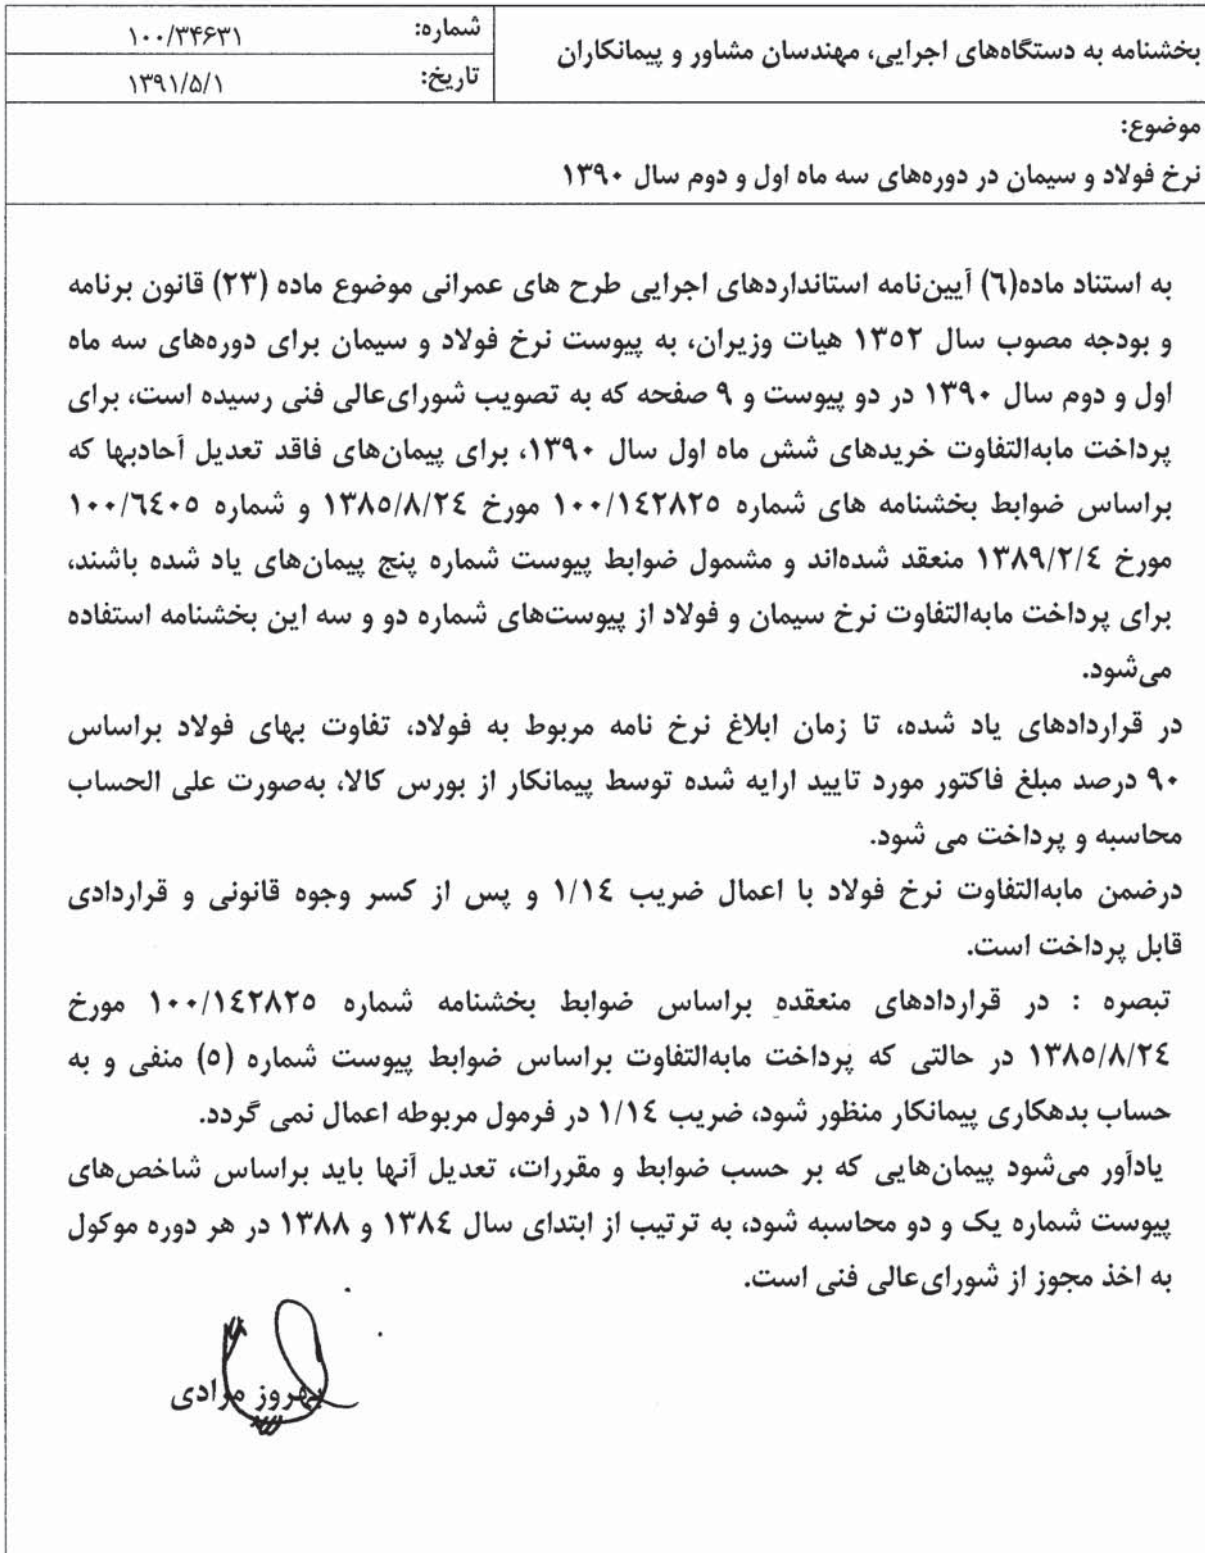 بخشنامه به دستگاه‌های اجرایی، مهندسان مشاور و پیمانکاران
شماره: ۱۰۰/۳۴۶۳۱
تاریخ: ۱۳۹۱/۵/۱
موضوع:
نرخ فولاد و سیمان در دوره‌های سه ماه اول و دوم سال ۱۳۹۰
به استناد ماده(٦) آیین‌نامه استانداردهای اجرایی طرح های عمرانی موضوع ماده (۲۳) قانون برنامه
و بودجه مصوب سال ۱۳۵۲ هیات وزیران، به پیوست نرخ فولاد و سیمان برای دوره‌های سه ماه
اول و دوم سال ۱۳۹۰ در دو پیوست و ۹ صفحه که به تصویب شورای‌عالی فنی رسیده است، برای
پرداخت مابه‌التفاوت خریدهای شش ماه اول سال ۱۳۹۰، برای پیمان‌های فاقد تعدیل آحادبها که
براساس ضوابط بخشنامه های شماره ۱۰۰/۱٤۲۸۲۵ مورخ ۱۳۸۵/۸/۲٤ و شماره ۱۰۰/٦٤۰۵
مورخ ۱۳۸۹/۲/٤ منعقد شده‌اند و مشمول ضوابط پیوست شماره پنج پیمان‌های یاد شده باشند،
برای پرداخت مابه‌التفاوت نرخ سیمان و فولاد از پیوست‌های شماره دو و سه این بخشنامه استفاده
می‌شود.
در قراردادهای یاد شده، تا زمان ابلاغ نرخ نامه مربوط به فولاد، تفاوت بهای فولاد براساس
۹۰ درصد مبلغ فاکتور مورد تایید ارایه شده توسط پیمانکار از بورس کالا، به‌صورت علی الحساب
محاسبه و پرداخت می شود.
درضمن مابه‌التفاوت نرخ فولاد با اعمال ضریب ۱/۱٤ و پس از کسر وجوه قانونی و قراردادی
قابل پرداخت است.
تبصره : در قراردادهای منعقده براساس ضوابط بخشنامه شماره ۱۰۰/۱٤۲۸۲۵ مورخ
۱۳۸۵/۸/۲٤ در حالتی که پرداخت مابه‌التفاوت براساس ضوابط پیوست شماره (۵) منفی و به
حساب بدهکاری پیمانکار منظور شود، ضریب ۱/۱٤ در فرمول مربوطه اعمال نمی گردد.
یادآور می‌شود پیمان‌هایی که بر حسب ضوابط و مقررات، تعدیل آنها باید براساس شاخص‌های
پیوست شماره یک و دو محاسبه شود، به ترتیب از ابتدای سال ۱۳۸٤ و ۱۳۸۸ در هر دوره موکول
به اخذ مجوز از شورای‌عالی فنی است.
بهروز مرادی